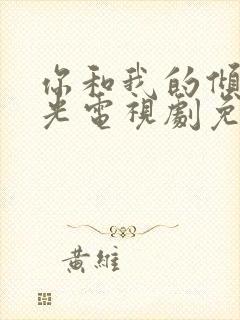 你和我的傾
光電視劇免
黃維